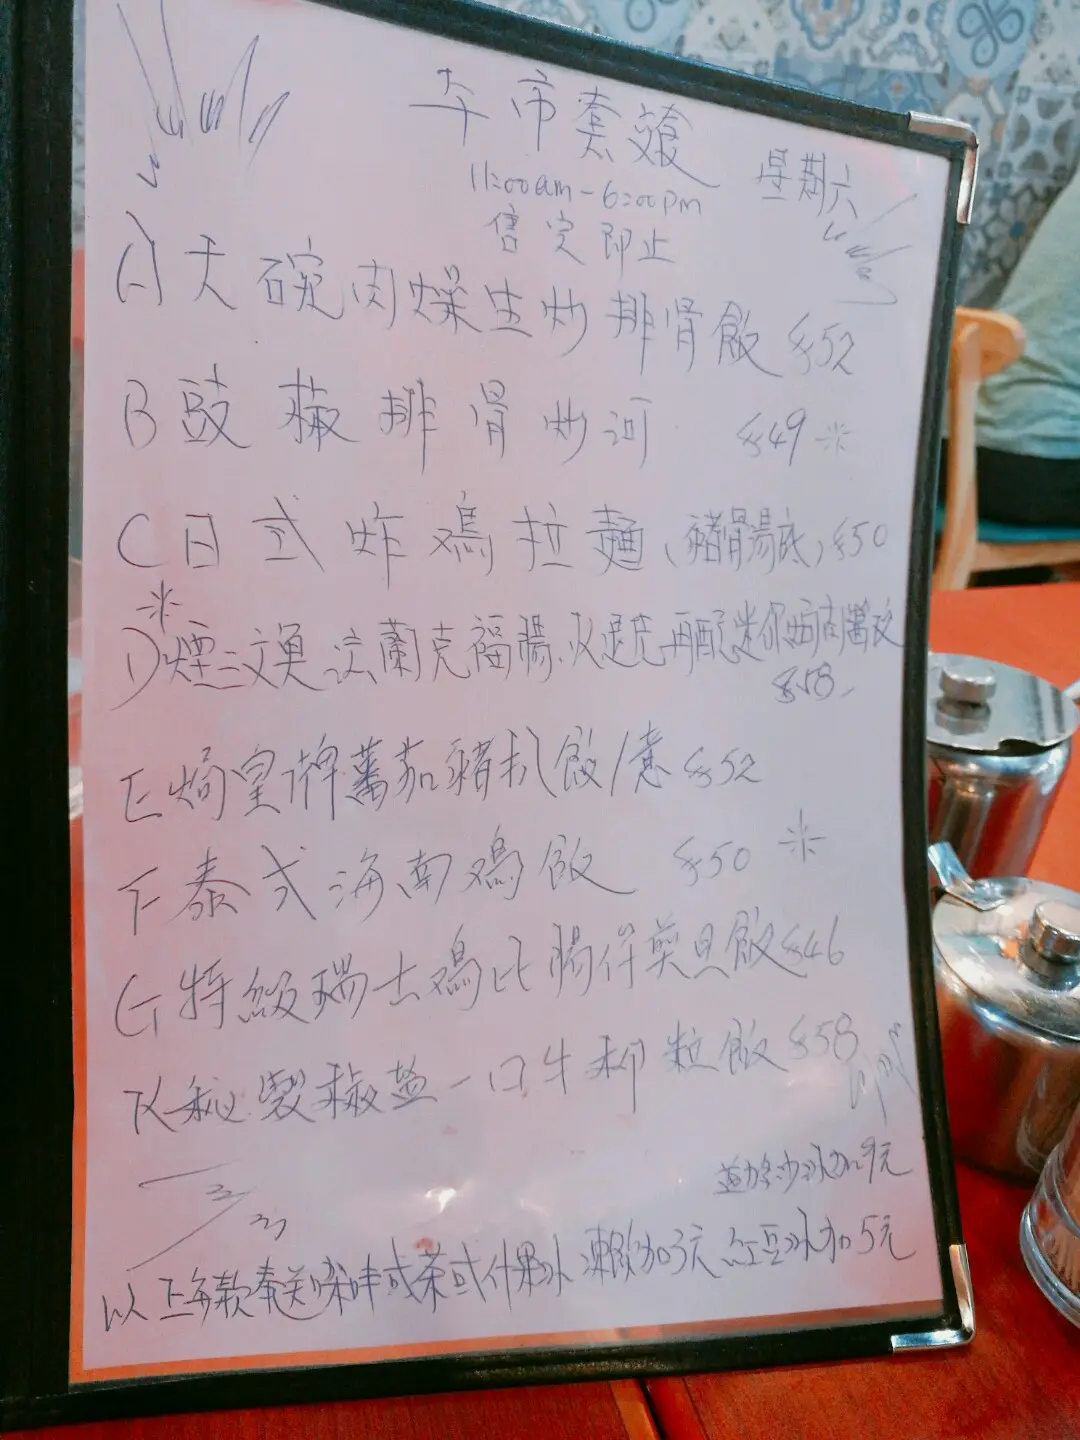 午市套餐
星期六
11:00am-6:00pm
售完即止
A 大碗肉燥生炒排骨飯 $52
B 豉椒排骨炒河 $49 *
C 日式炸鷄拉麵(豬骨湯底) $50
*
D 煙三文魚法蘭克福腸,火退芝再配迷你西
$58
E 焗皇牌蕃茄豬扒飯/意 $52
F 泰式海南鷄飯 $50 *
G 特級瑞士鷄比腸仔煎旦飯 $46
K 秘製椒鹽一口牛柳粒飯 $58
沙冰加9元
以上每款奉送咪啡或茶或什果冰 凍飲加3元 紅豆冰加5元